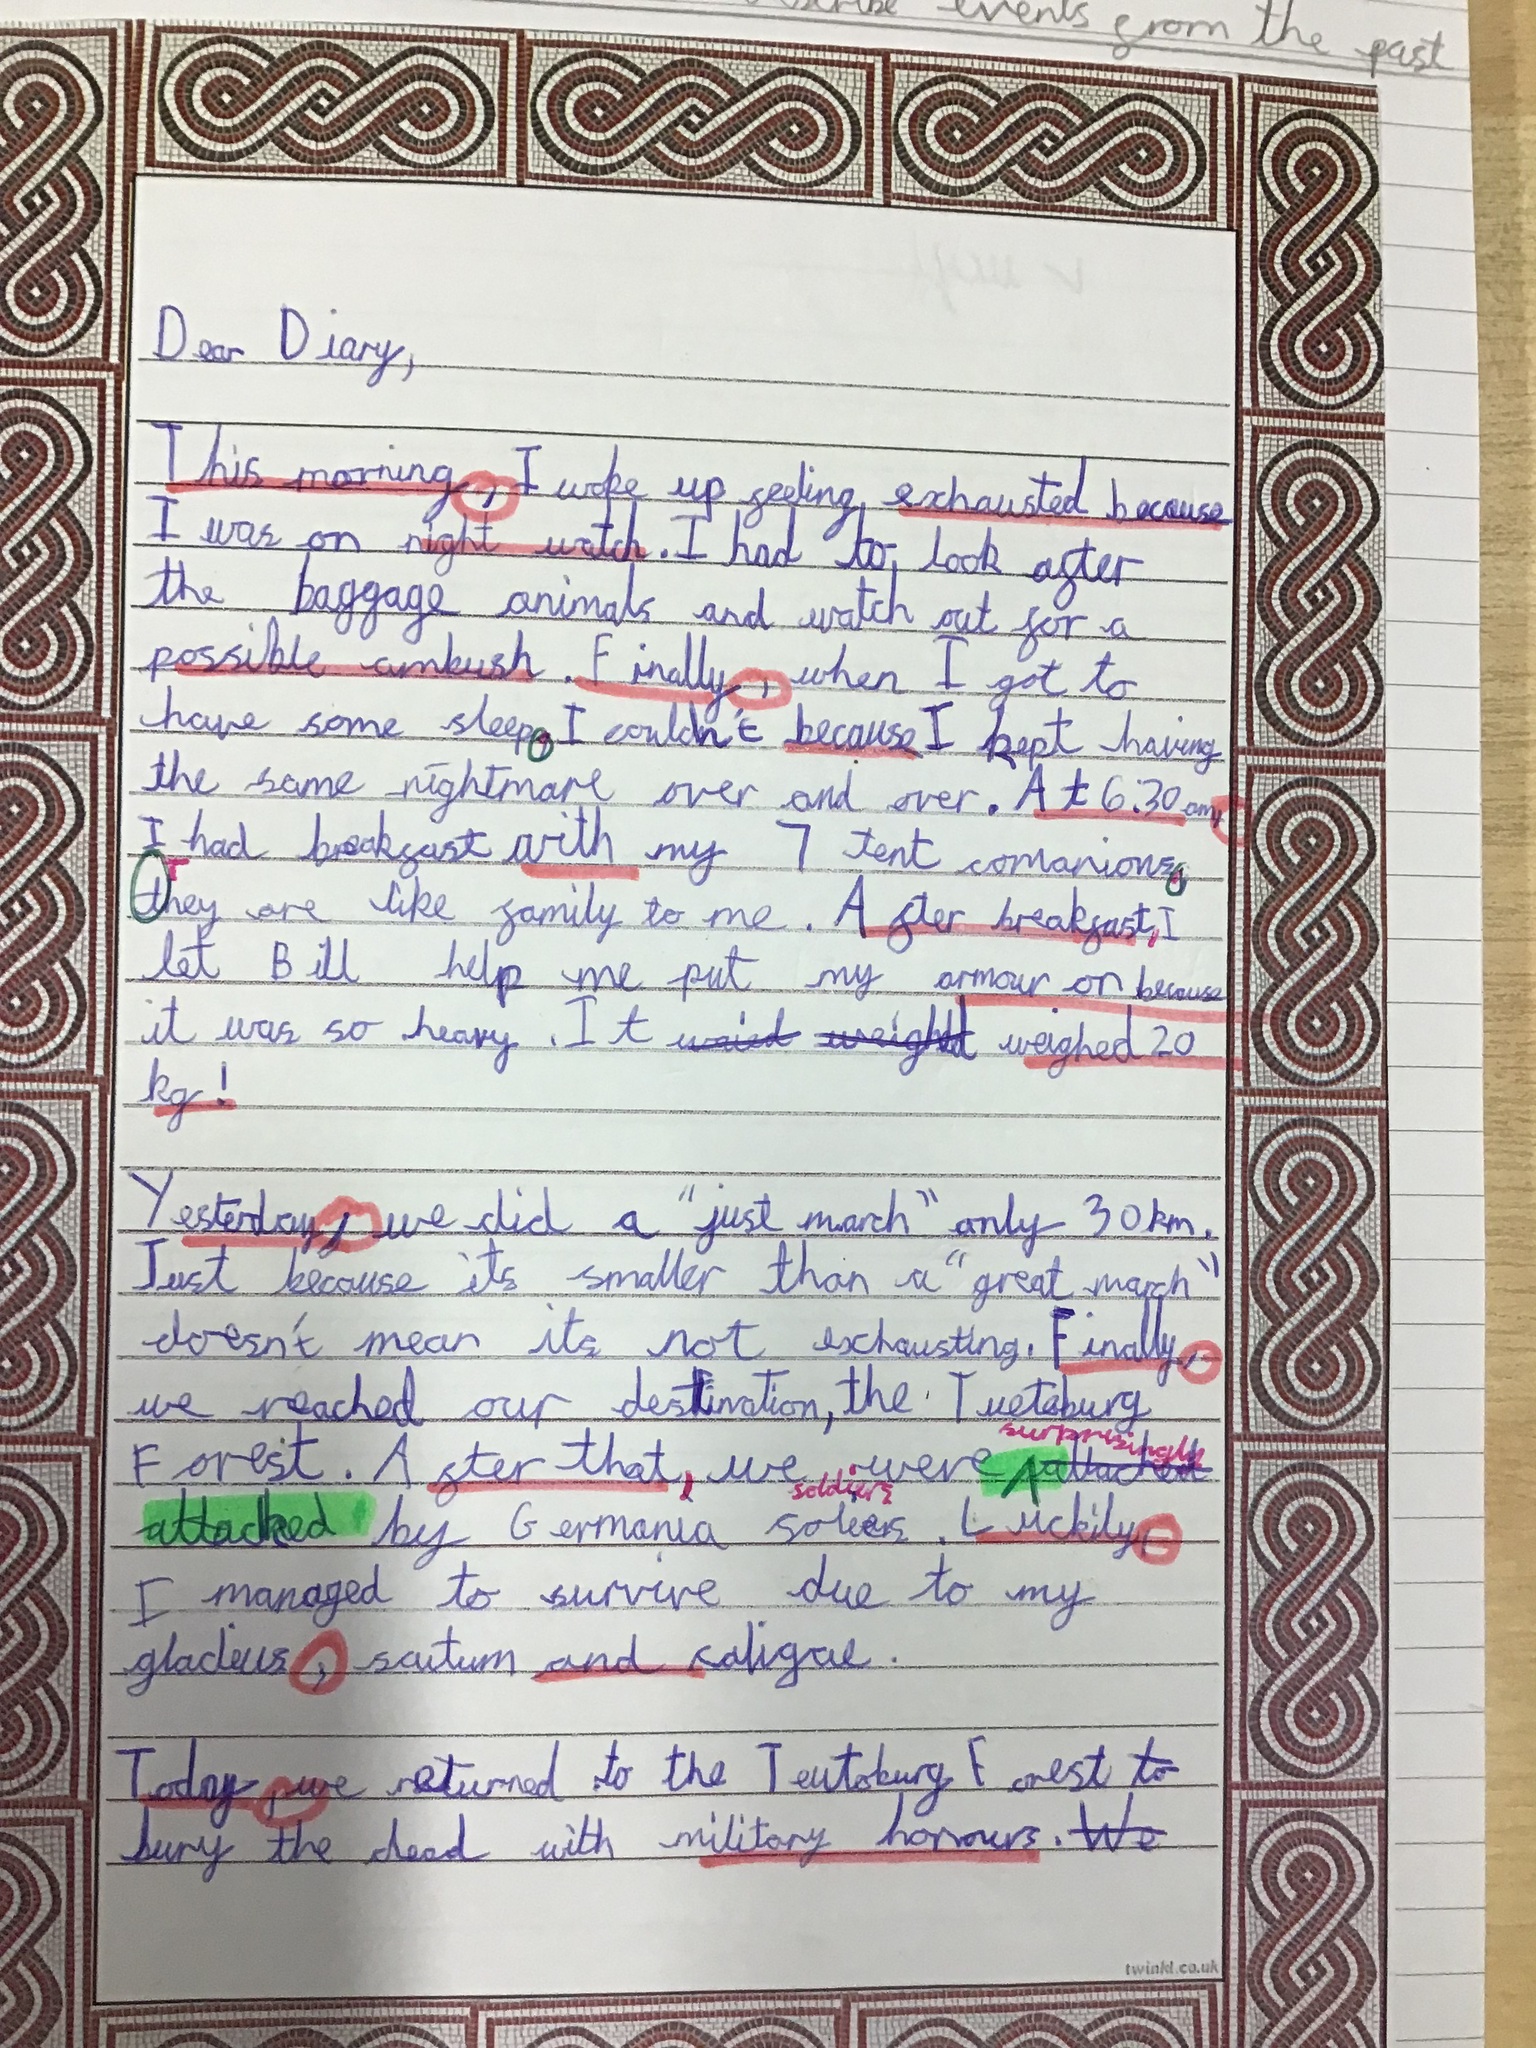 events from the past
Dear Diary,
This morning, I woke up feeling exhausted because
I was on night watch. I had to look after
the baggage animals and watch out for a
possible ambush. Finally, when I got to
have some sleep, I couldn't because I kept having
the same nightmare over and over. At 6.30 am,
I had breakfast with my 7 tent comanions.
They are like family to me. After breakfast, I
let Bill help me put my armour on because
it was so heavy. It waied weight weighed 20
kg!
Yesterday, we did a "just march" only 30km.
Just because its smaller than a "great march"
doesn't mean its not exhausting. Finally,
we reached our destination, the Tuetsburg
surprisingly
Forest. After that, we were attacked
soldiers
attacked by Germania solers. Luckily,
I managed to survive due to my
gladius, scutum and caligae.
Today, we returned to the Teutsburg Forest to
bury the dead with military honours. We
twinkl.co.uk